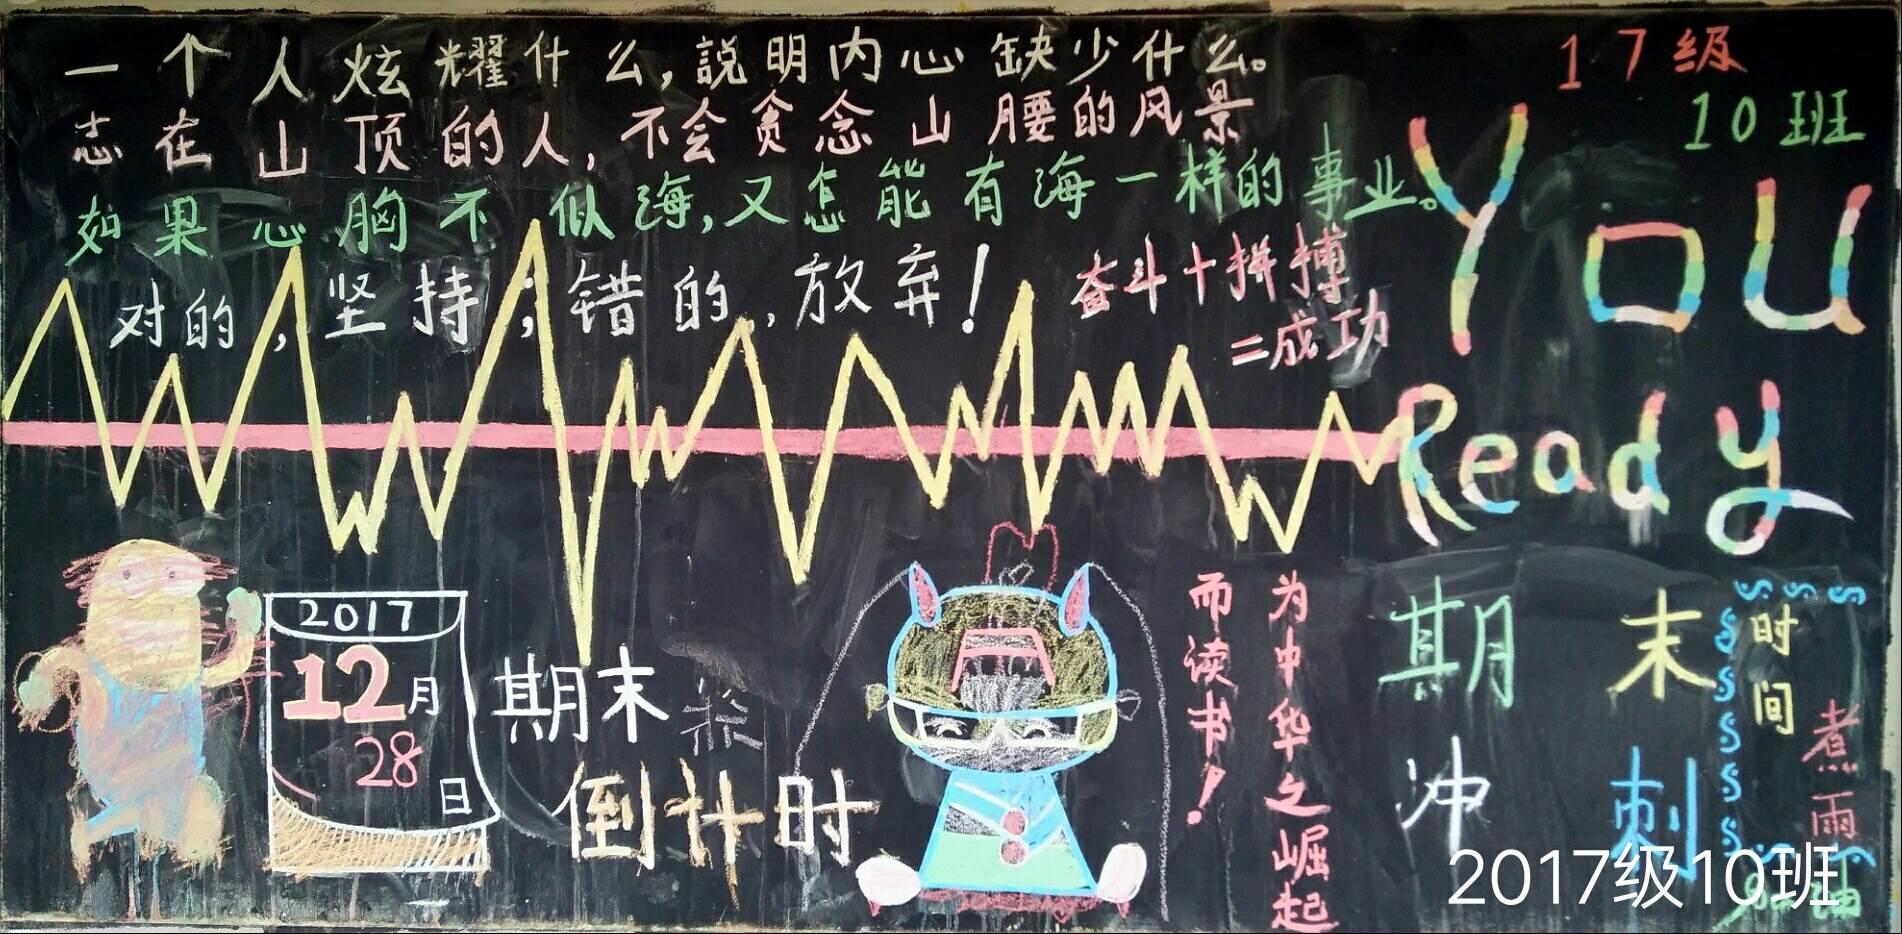 一个人炫耀什么,說明内心缺少什么。
志在山顶的人,不会贪念山腰的风景
如果心胸不似海,又怎能有海一样的事业。
对的,坚持;错的,放弃!
奋斗+拼搏
=成功
17级
10班
You
Ready
2017
12月
28
日
期末
倒计时
为中华之崛起
而读书!
期末
冲刺
时间
煮雨
2017级10班